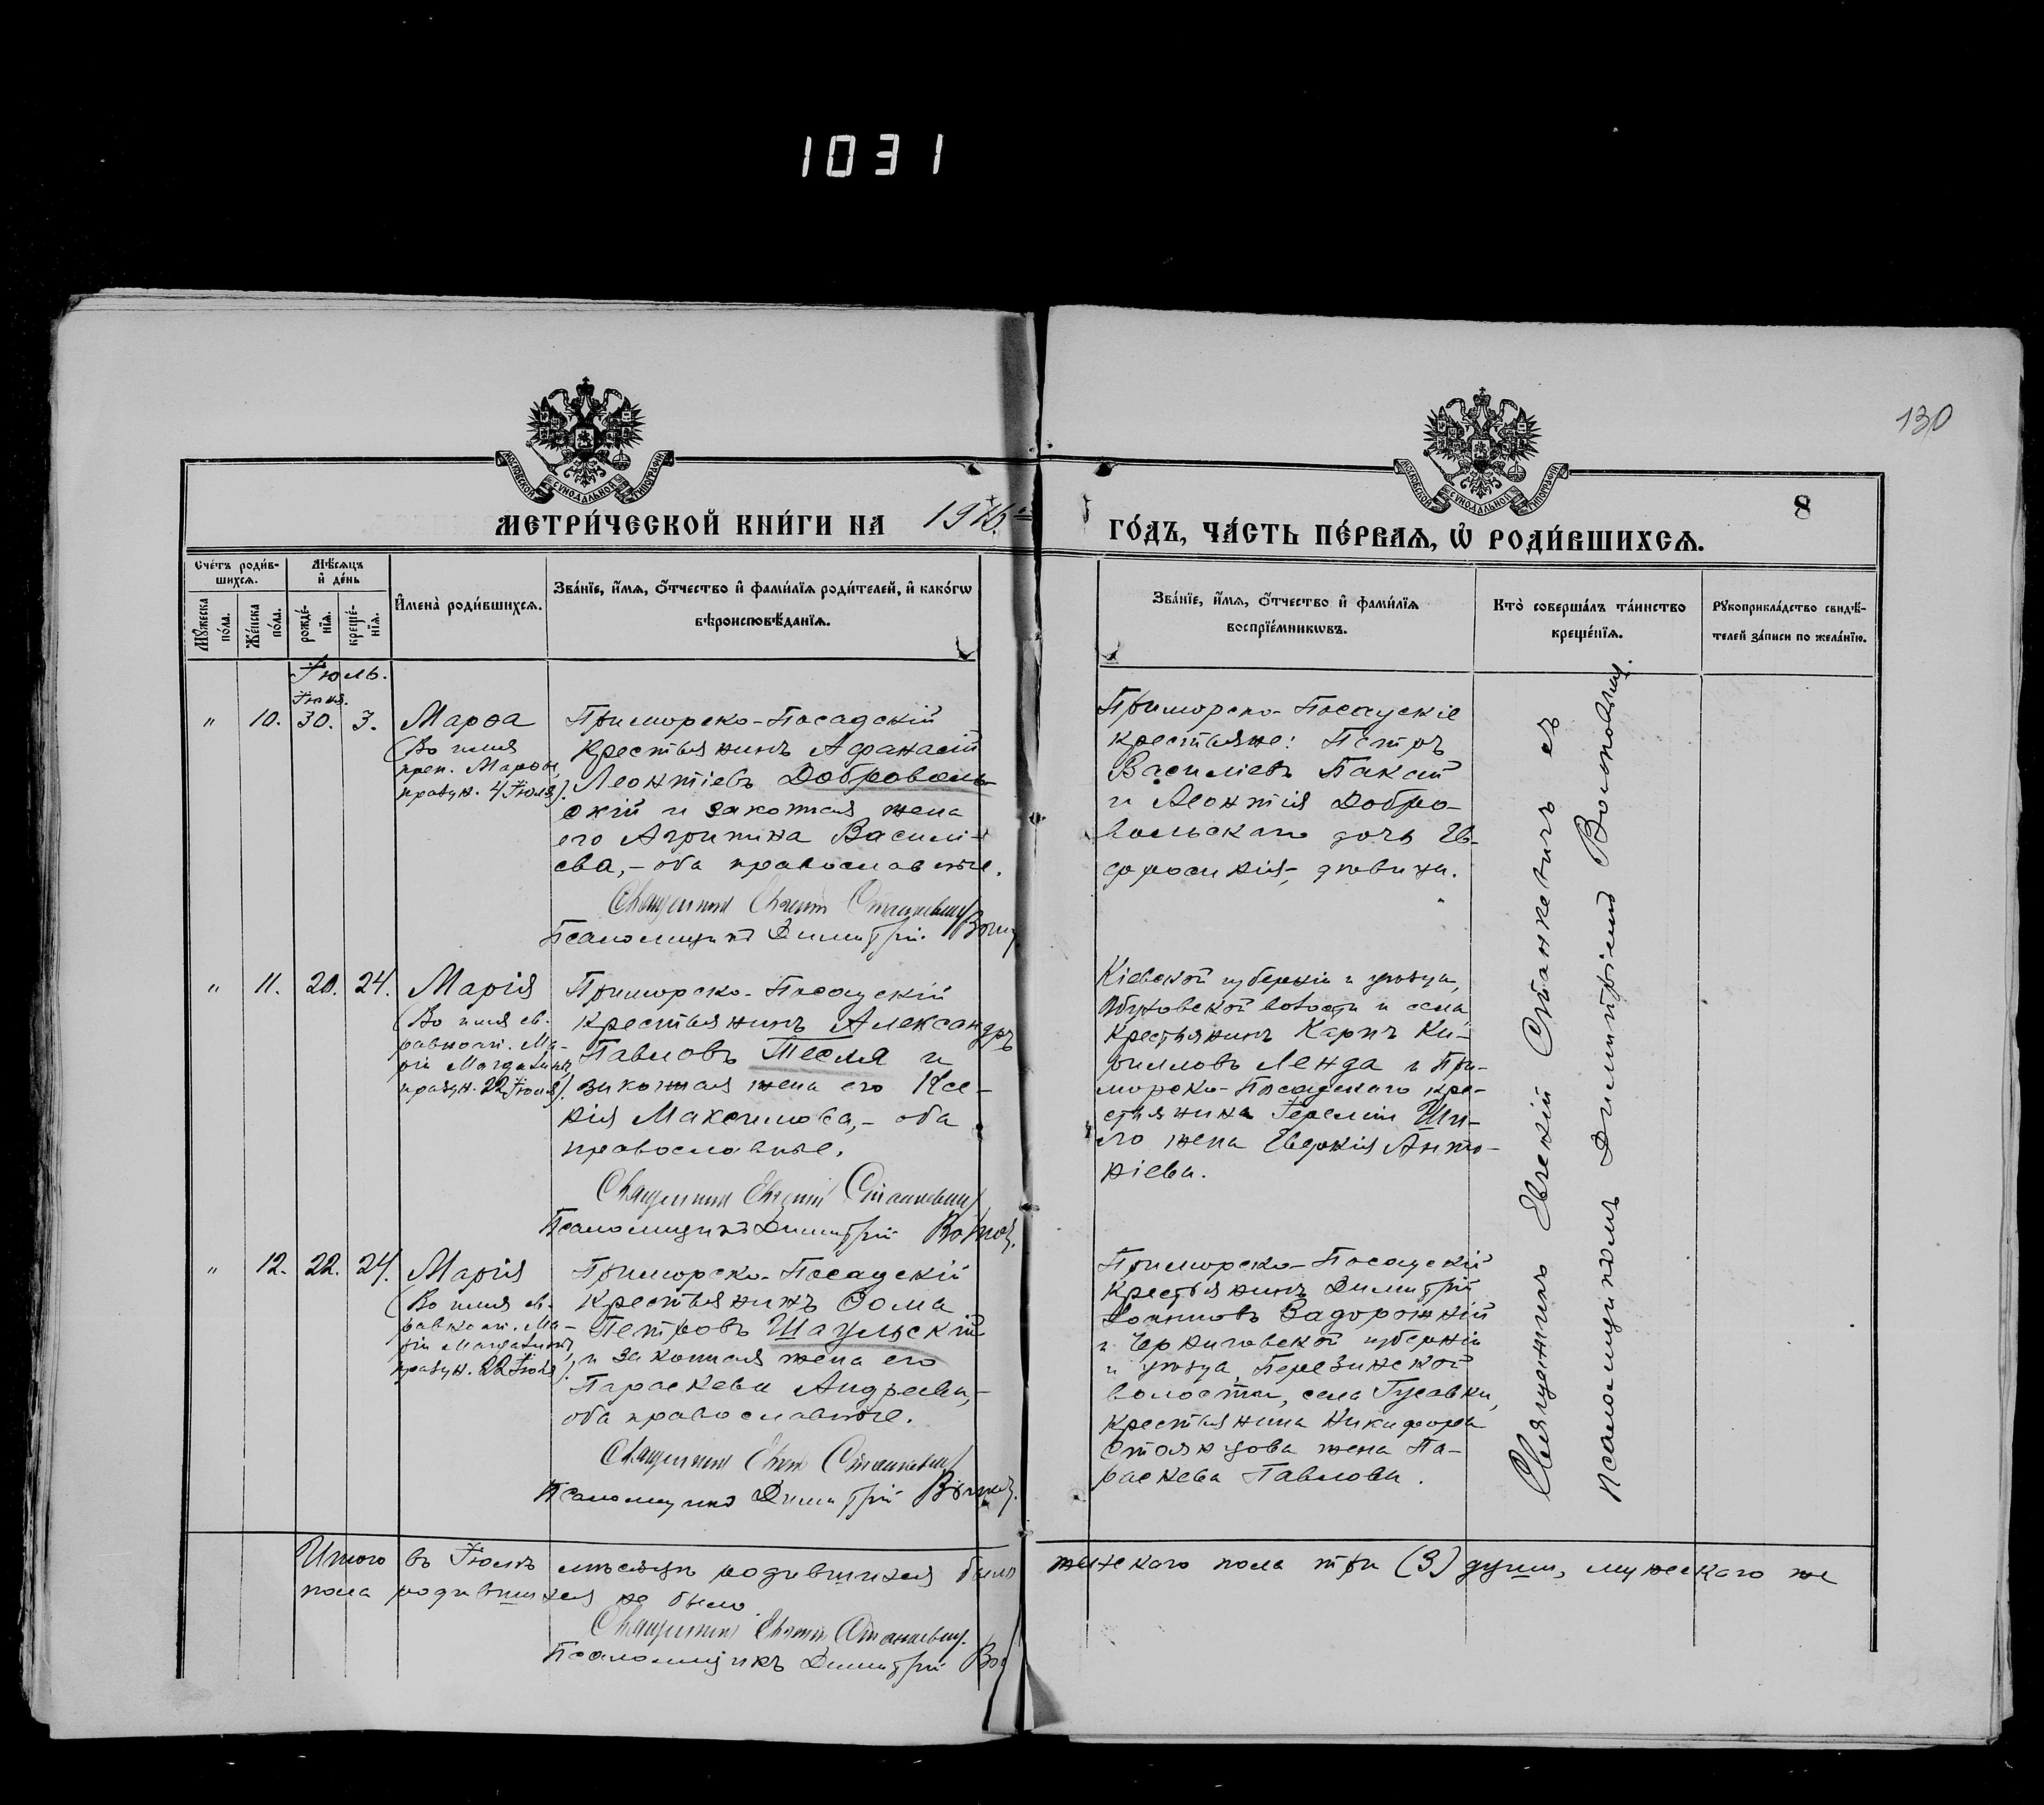 1031
130
МОСКОВСКОЙ СУНОДАЛЬНОЙ ТИПОГРАФІИ
МОСКОВСКОЙ СУНОДАЛЬНОЙ ТИПОГРАФІИ
8
МЕТРИ́ЧЕСКОЙ КНИ́ГИ НА
ГО́ДЪ, ЧА́СТЬ ПЕ́РВАѦ, Ѡ҆ РОДИ́ВШИХСѦ.
Сче́тъ роди́в-
шихсѧ.
Мѣ́сѧцъ
и҆ де́нь
Мꙋ́жеска
по́ла.
Же́нска
по́ла.
рожде́-
нїѧ.
креще́-
нїѧ.
И҆мена̀ роди́вшихсѧ.
Зва́нїе, и҆́мѧ, ѻ҆́тчество и҆ фами́лїѧ роди́телей, и҆ како́гѡ
вѣроисповѣ́данїѧ.
Зва́нїе, и҆́мѧ, ѻ҆́тчество и҆ фами́лїѧ
воспрїе́мникѡвъ.
Кто̀ соверша́лъ та́инство
креще́нїѧ.
Рꙋкоприкла́дство свидѣ́-
телей за́писи по жела́нїю.
Іюль.
Іюня.
" 10. 30. 3. Марѳа
(Во имя
преп. Марѳы,
празун. 4 Іюля).
Приморско-Посадскій
крестьянинъ Афанасій
Леонтіевъ Доброволь-
скій и законная жена
его Агрипина Василі-
ева, - оба православные.
Священникъ Евгеній Станкевичъ
Псаломщикъ Димитрій
Приморско-Посадскіе
крестьяне: Петръ
Василіевъ Бакай
и Леонтія Добро-
вольскаго дочь Ев-
фросинія, дѣвица.
" 11. 20. 24. Марія
(Во имя св.
равноап. Ма-
ріи Магдалины,
празун. 22 Іюля).
Приморско-Посадскій
крестьянинъ Александръ
Павловъ Тесля и
законная жена его Ксе-
нія Максимова, - оба
православные.
Священникъ Евгеній Станкевичъ
Псаломщикъ Димитрій
Кіевской губерніи и уѣзда,
волости и села
крестьянинъ Карпъ Ки-
рилловъ Ленда и При-
морско-Посадскаго кре-
стьянина Іереміи
жена Евдокія Анто-
ніева.
" 12. 22. 24. Марія
(Во имя св.
равноап. Ма-
ріи Магдалины,
празун. 22 Іюля).
Приморско-Посадскій
крестьянинъ Ѳома
Петровъ Шаульскій
и законная жена его
Параскева Андреева, -
оба православные.
Священникъ Евгеній Станкевичъ
Псаломщикъ Димитрій
Приморско-Посадскій
крестьянинъ Димитрій
Задорожній
и Черниговской губерніи
и уѣзда, Березинской
волости, села Гусавки,
крестьянина Никифора
жена Па-
раскева Павлова.
Священникъ Евгеній Станкевичъ съ
псаломщикомъ Димитріемъ
Итого въ Іюлѣ мѣсяцѣ родившихся было женскаго пола три (3) души, мужескаго же
пола родившихся не было.
Священникъ Евгеній Станкевичъ.
Псаломщикъ Димитрій